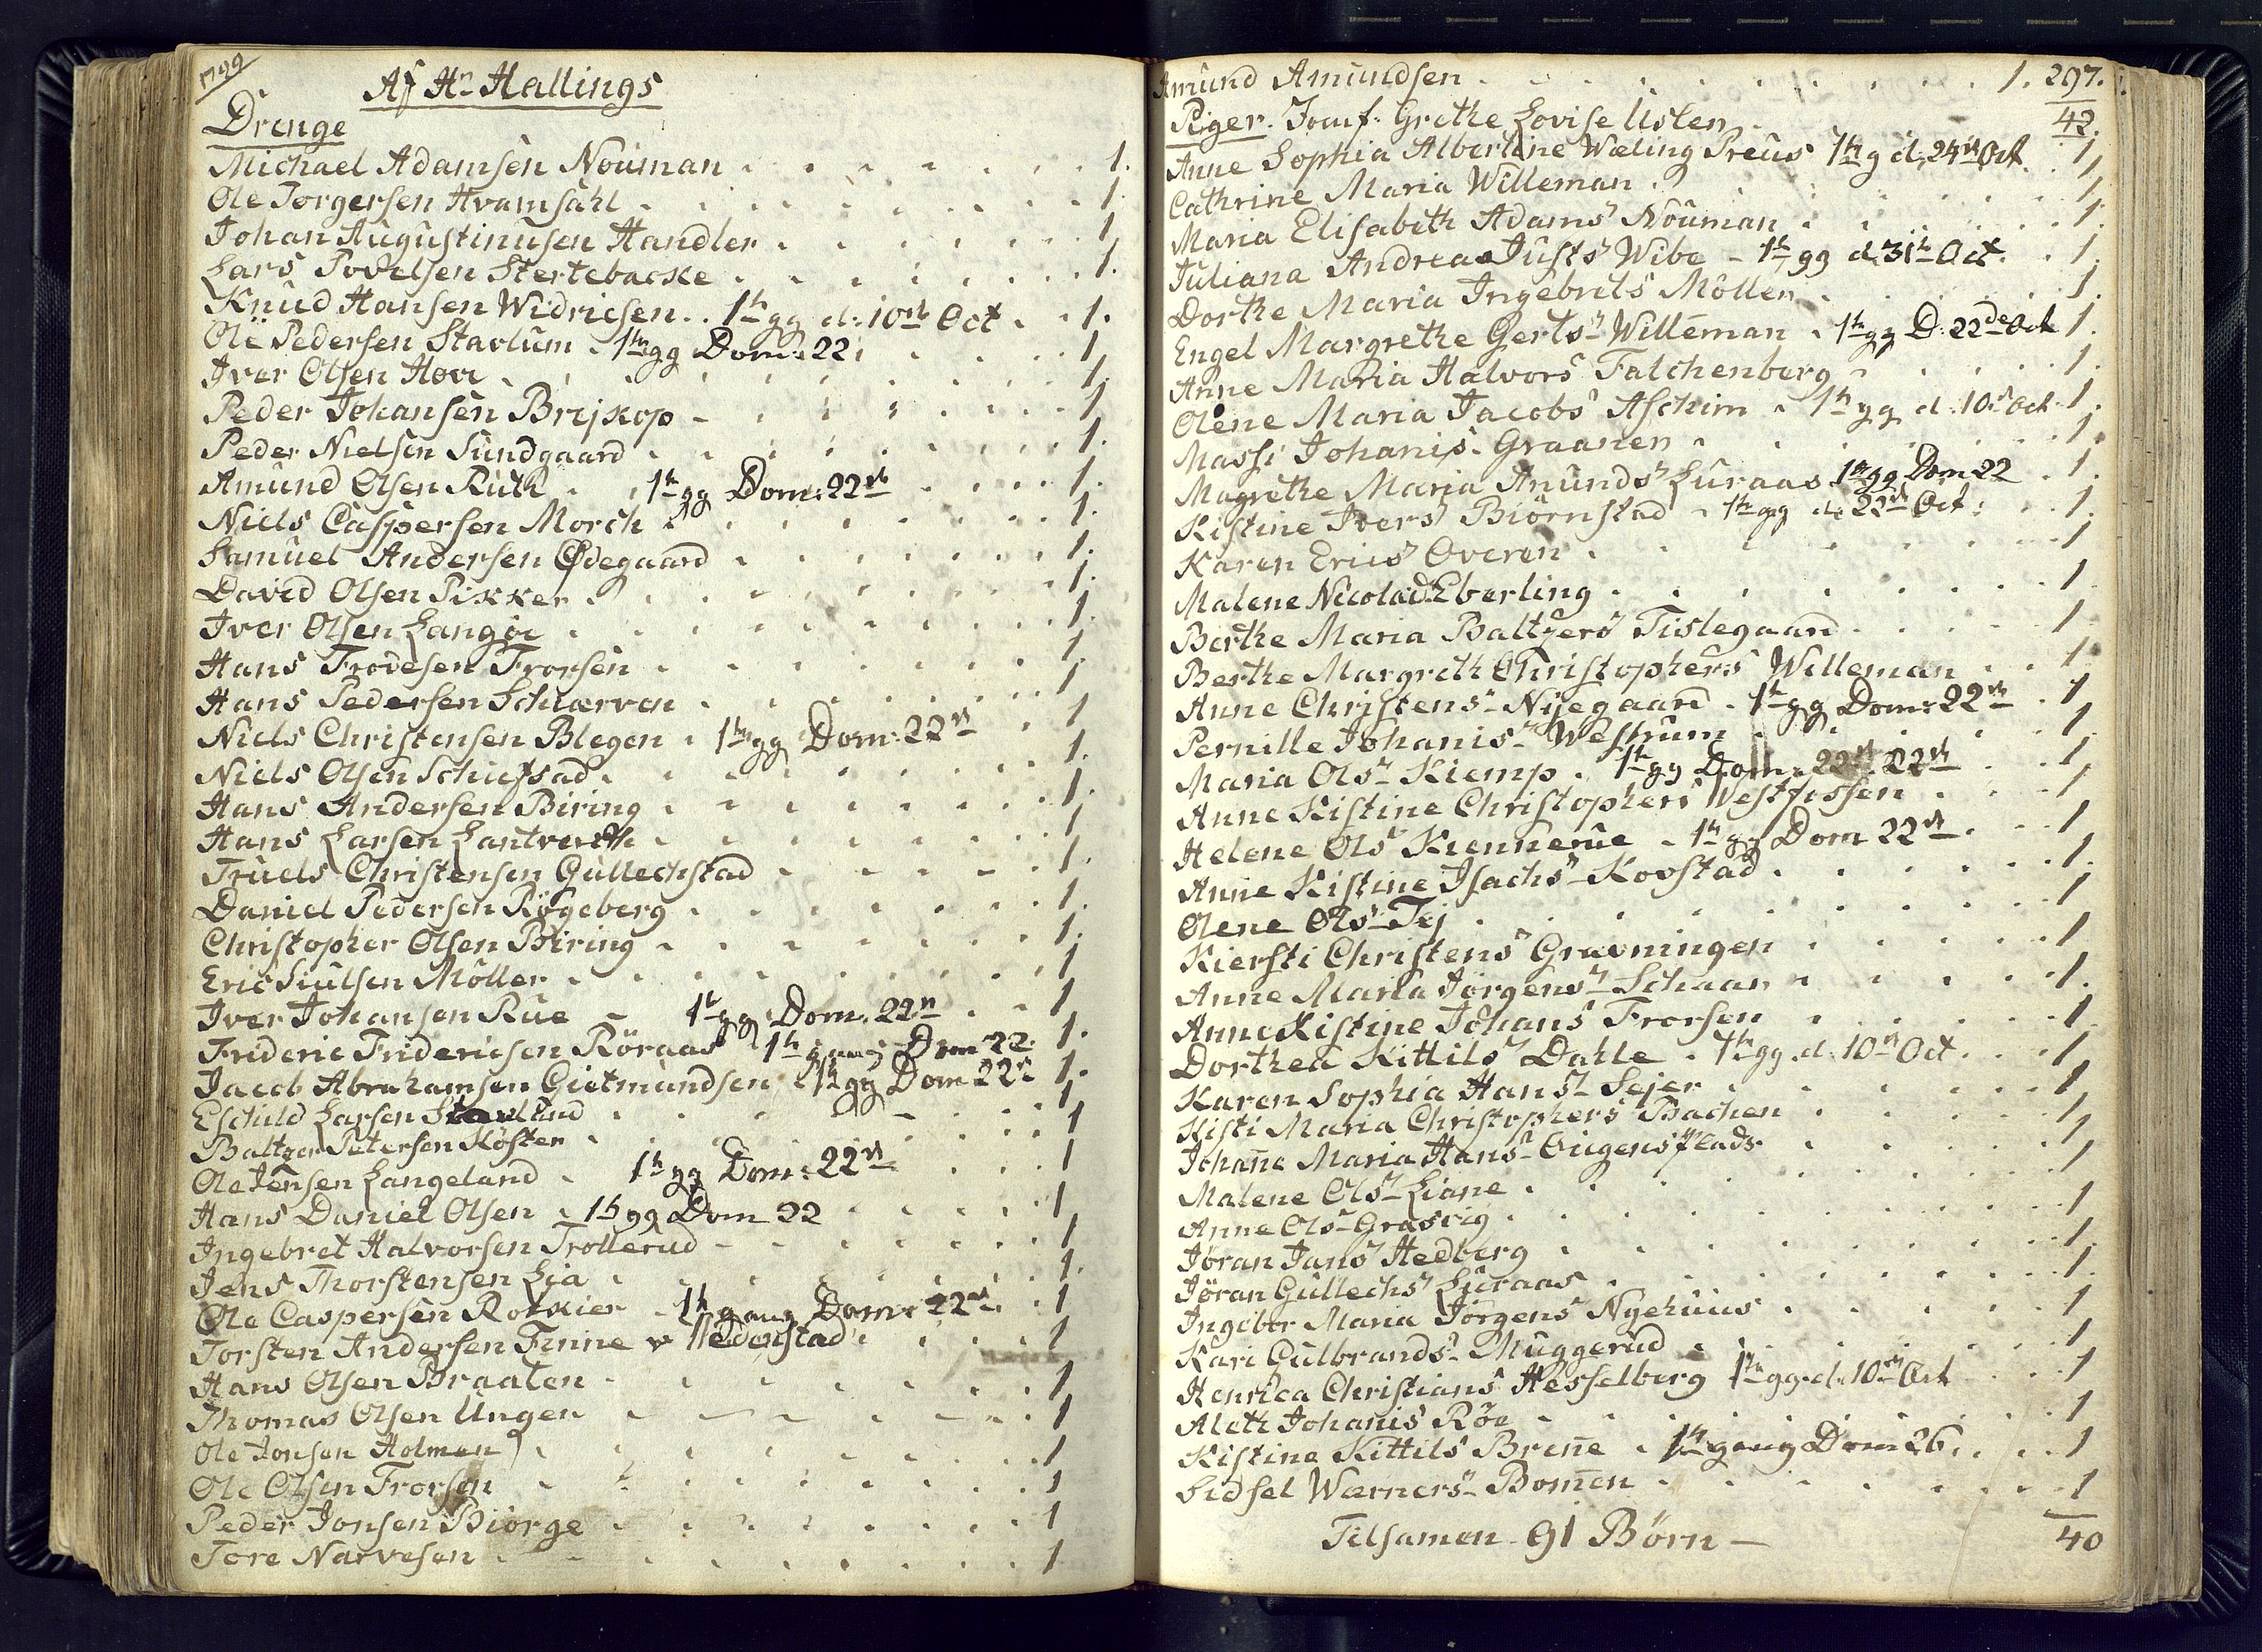 1799
Af Hr Hallings
Drenge
Michael Adamsen Nouman . . . . . . . 1.
Ole Jørgersen Hvamsahl . . . . . . . 1.
Johan Augustinusen Handler . . . . . . 1
Lars Povelsen Stertebacke . . . . . . 1.
Knud Hansen Widricsen . . 1te gg d: 10de Oct . . 1.
Ole Pedersen Stavlum . 1te gg Dom: 22 . . . . 1
Iver Olsen Hove . . . . . . . . 1.
Peder Johansen Brejskop - . . . . . . . 1
Peder Nielsen Sundgaard . . . . . . . 1.
Amund Olsen Ruth . . 1te gg Dom: 22de . . . . 1.
Niels Caspersen Morch . . . . . . . 1.
Samuel Andersen Ødegaard . . . . . . . 1.
David Olsen Pikker . . . . . . . . 1.
Iver Olsen Langøe . . . . . . . . 1.
Hans Frodesen Frorsen . . . . . . . 1.
Hans Pedersen Schærven . . . . . . . 1
Niels Christensen Blegen . 1te gg Dom: 22de . . 1
Niels Olsen Schiefstad . . . . . . . 1.
Hans Andersen Biring . . . . . . . . 1.
Hans Larsen Lantverch . . . . . . . 1
Truels Christensen Gullechstad . . . . . 1.
Daniel Pedersen Rögeberg . . . . . . . 1.
Christopher Olsen Biring . . . . . . . 1.
Eric Siulsen Möller . . . . . . . . 1
Iver Johansen Rue - 1te gg Dom. 22de . . 1
Frideric Fridericsen Röraas 1te gang Dom 22 1.
Jacob Abrahamsen Gietmundsen 1te gg Dom 22de 1.
Eschild Larsen Stavlund . . . . . . . 1
Baltzer Petersen Köster . . . . . . . 1
Ole Jensen Langeland . 1te gg Dom: 22de . . . 1
Hans Daniel Olsen . 1te gg Dom 22 . . . . 1
Ingebret Halvorsen Trollerud - . . . . . 1
Jens Thorstensen Lia . . . . . . . . 1.
Ole Caspersen Rotskier . 1te gang Dom: 22de . . 1
Torsten Andersen Finne v Hedenstad . . . . 1
Hans Olsen Braaten . . . . . . . . 1
Thomas Olsen Ungen . . . . . . . . 1
Ole Jonsen Holmen . . . . . . . . 1
Ole Olsen Frorsen . . . . . . . . 1
Peder Jonsen Biörge . . . . . . . . 1
Tore Narvesen . . . . . . . . 1
Amund Amundsen . . . . . . . . 1. 297.
42.
Piger. Jomf: Grethe Lovise Uslen . 1
Anne Sophia Albertine Wæling Preus 1te g d. 24de Oct . 1
Cathrine Maria Willeman . . . . . . 1
Maria Elisabeth Adams Nouman . . . . . 1.
Juliana Andrea Justs Wibe - 1te gg d. 31te Oct . . 1.
Dorthe Maria Ingebrets Möller . . . . . 1.
Engel Margrethe Gerts Willeman . 1te gg D. 22de Oct 1.
Anne Maria Halvors Falchenberg . . . . . 1.
Olene Maria Jacobs Aschim . 1te gg d. 10de Oct 1.
Massi Johanis Graanen . . . . . . . 1.
Magrethe Maria Anunds Luraas 1te gg Dom 22 . 1.
Kistine Ivers Biörnstad . 1te gg d: 22de Oct: . . 1.
Karen Erics Overen . . . . . . . . 1
Malene Nicolai Eberling . . . . . . . 1
Berthe Maria Baltzers Tislegaard . . . . . 1
Berthe Margreth Christophers Willeman . . 1
Anne Christens Nyegaard . 1te gg Dom: 22de . 1
Pernille Johanis Westrum . . . . . . 1
Maria Ols Kiemp . 1te gg Dom. 22de . . 1
Anne Kistine Christophers Vestfossen . . . 1
Helene Ols Kiennerue . 1te gg Dom 22de . . . 1
Anne Kistine Isachs Kovstad . . . . . . 1.
Olene Ols Tej . . . . . . . . 1
Kiersti Christens Gravningen . . . . . . 1
Anne Maria Jörgens Schaar . . . . . . 1.
Anne Kistine Johans Frorsen . . . . . . 1
Dorthea Kittils Dahle . 1te gg d. 10de Oct . . . 1
Karen Sophia Hans Sejer . . . . . . . 1
Kisti Maria Christophers Bachen . . . . . 1
Johañe Maria Hans Eugens Plads . . . . . 1
Malene Ols Liane . . . . . . . . 1
Anne Ols Grasvig . . . . . . . . 1
Jöran Jans Hedberg . . . . . . . . 1.
Jöran Gullechs Luraas . . . . . . . 1.
Ingebor Maria Jörgens Nyehuus . . . . . 1
Kari Gulbrands Muggerud . . . . . . . 1
Henrica Christians Hesselberg 1te gg d. 10de Oct . . 1
Aleth Johanis Röe . . . . . . . . 1
Kistine Kittils Breñe . 1te gang Dom 26 . . . 1
Sidsel Wærners Bomen . . . . . . . 1
Tilsamen 91 Börn - 40